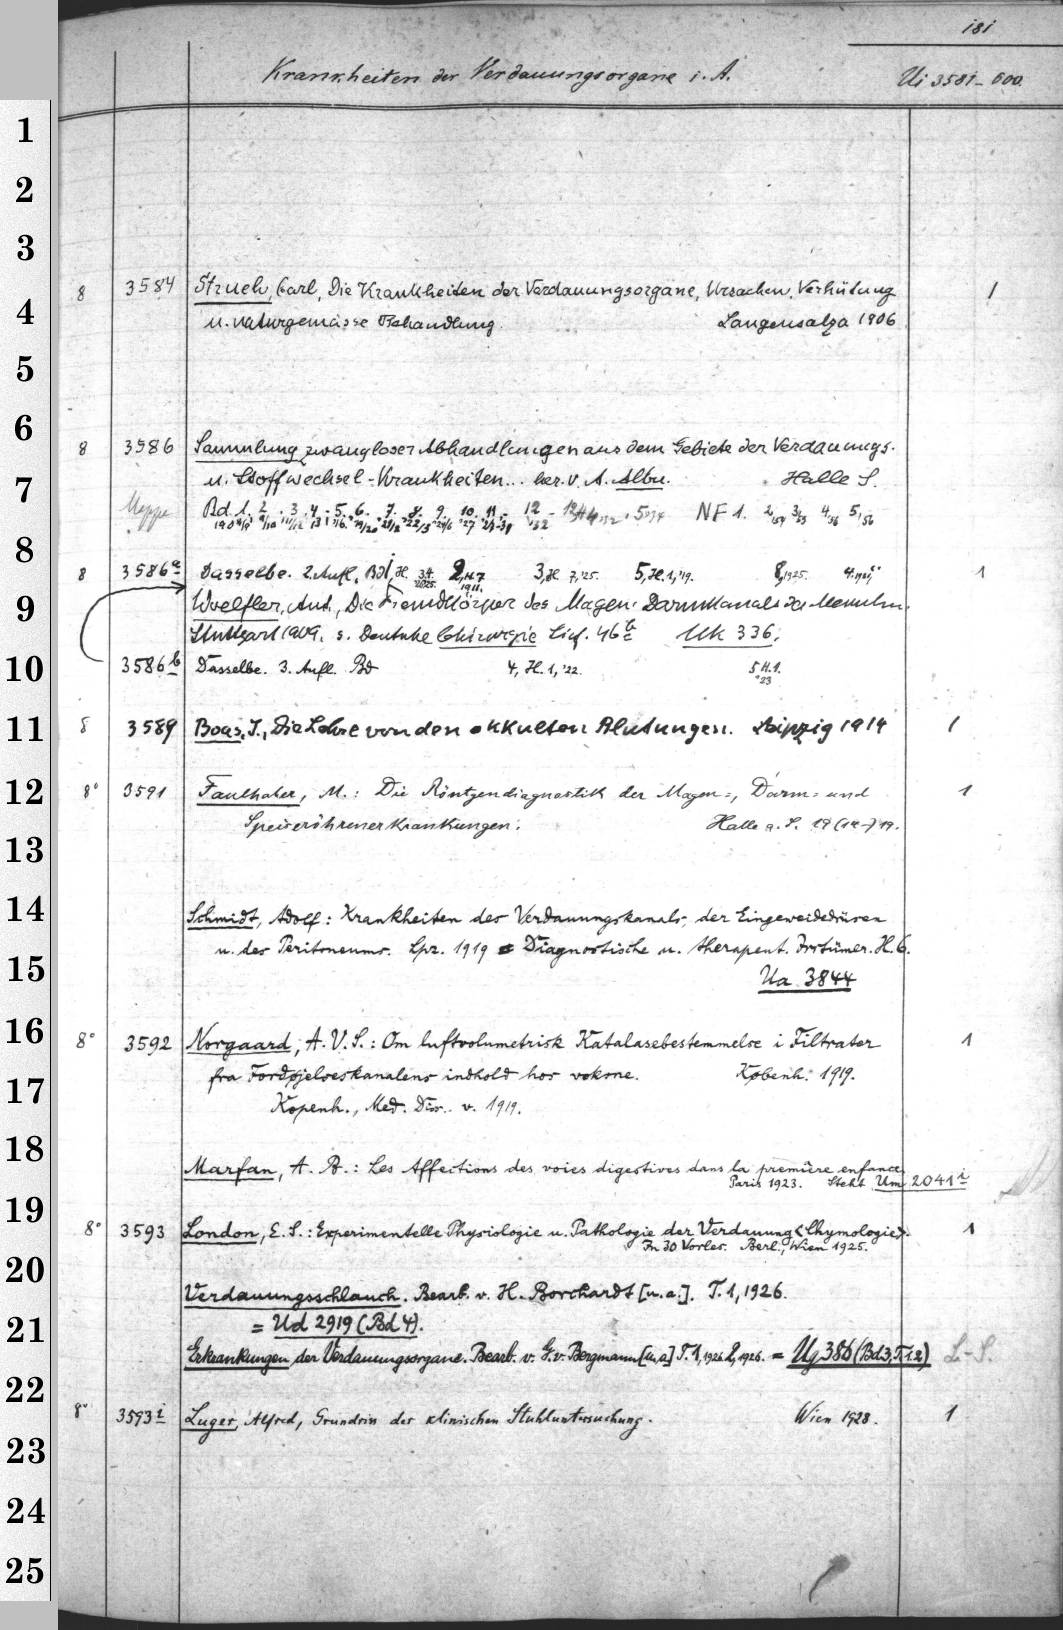 181
Krankheiten der Verdauungsorgane i. A. Ui 3581-600
1
2
3
8 3584 Strueh, Carl, Die Krankheiten der Verdauungsorgane, Ursachen, Verhütung 1
4
u. naturgemässe Behandlung. Langensalza 1906
5
6
8 3586 Sammlung zwangloser Abhandlungen aus dem Gebiete der Verdauungs-
u. Stoffwechsel-Krankheiten... hsr. v. A. Albu. Halle S.
7
Mappe Bd. 1. 2. 3. 4. 5. 6. 7. 8. 9. 10. 11. 12 NF 1.
8
8 3586a Dasselbe. 2. Aufl. Bd 1, H. 3.4. 2, H. 7 3, H. 7,'25. 5, H. 1,'19. 8, 1925. 1
9
Woelfler, Ant., Die Fremdkörper des Magen-Darmkanals des Menschen.
Stuttgart 1909. s. Deutsche Chirurgie Lief. 46b Uk 336.
10
3586b Dasselbe. 3. Aufl. Bd 4, H. 1, '22. 5 H. 1. '23
11
8 3589 Boas, J., Die Lehre von den okkulten Blutungen. Leipzig 1914 1
12
8° 3591 Faulhaber, M.: Die Röntgendiagnostik der Magen-, Darm- und 1
Speiseröhrenerkrankungen. Halle a. S. 19(14-)19.
13
14
Schmidt, Adolf: Krankheiten des Verdauungskanals, der Eingeweidedrüsen
u. des Peritoneums. Lpz. 1919 = Diagnostische u. therapeut. Irrtümer. H. 6.
15
Ua 3844
16
8° 3592 Norgaard, A. V. S.: Om luftvolumetrisk Katalasebestemmelse i Filtrater 1
fra Fordøjelseskanalens indhold hos voksne. Københ. 1919.
17
Kopenh., Med. Diss. v. 1919.
18
Marfan, A. B.: Les Affections des voies digestives dans la première enfance
Paris 1923. steht Um 2041i
19
8° 3593 London, E. S.: Experimentelle Physiologie u. Pathologie der Verdauung <Chymologie>. 1
In 30 Vorles. Berl., Wien 1925.
20
Verdauungsschlauch. Bearb. v. H. Borchardt [u. a.]. T. 1, 1926.
21
= Ud 2919 (Bd 4).
Erkrankungen der Verdauungsorgane. Bearb. v. G. v. Bergmann [u. a.] T. 1, 1926. 2, 1926. = Ug 386 (Bd 3, T. 1.2) L-S.
22
8° 3593i Luger, Alfred, Grundriss der klinischen Stuhluntersuchung. Wien 1928. 1
23
24
25